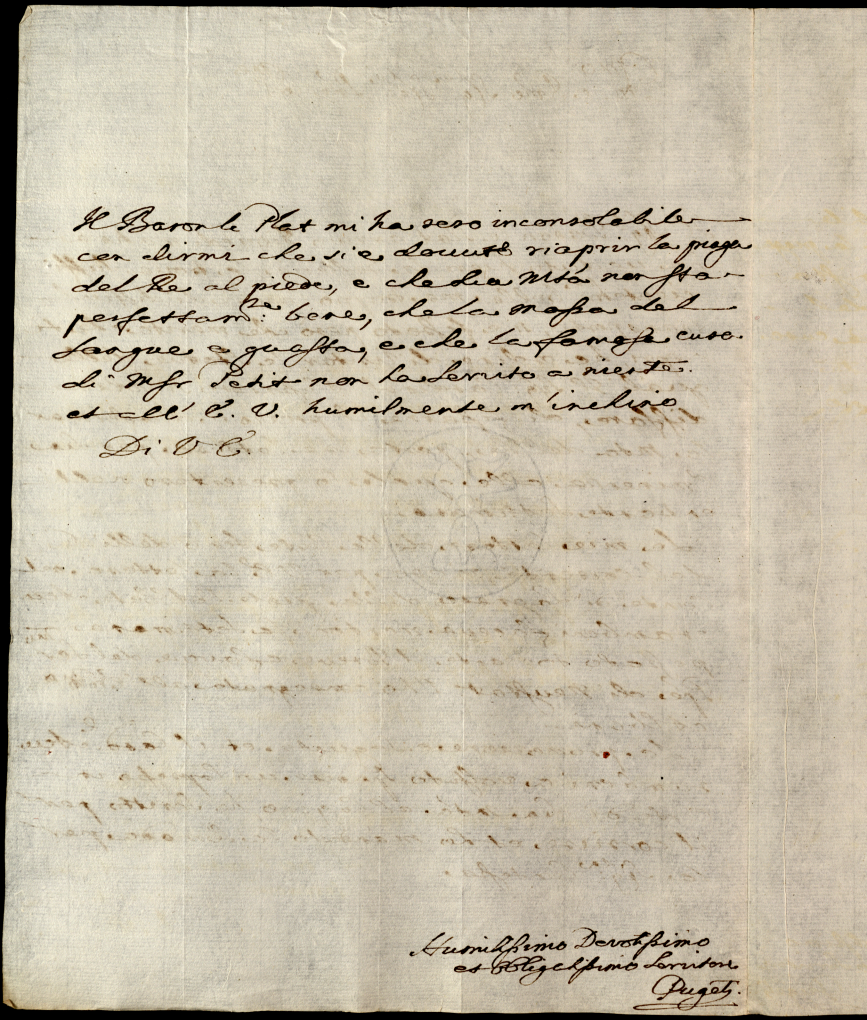 Il Baron le Plat mi ha reso inconsolabile
con dirmi che si e dovuto riaprir la piaga
del Re al piede, e che Sua Mtà non sta
perfettam:te bene, che la massa del
sangue e guasta, e che la famosa cura
di Msr Petit non ha servito a niente.
et all' E. V. humilmente m'inchino
Di V E.
Humilissimo Devotissimo
et obligatissimo Servitore